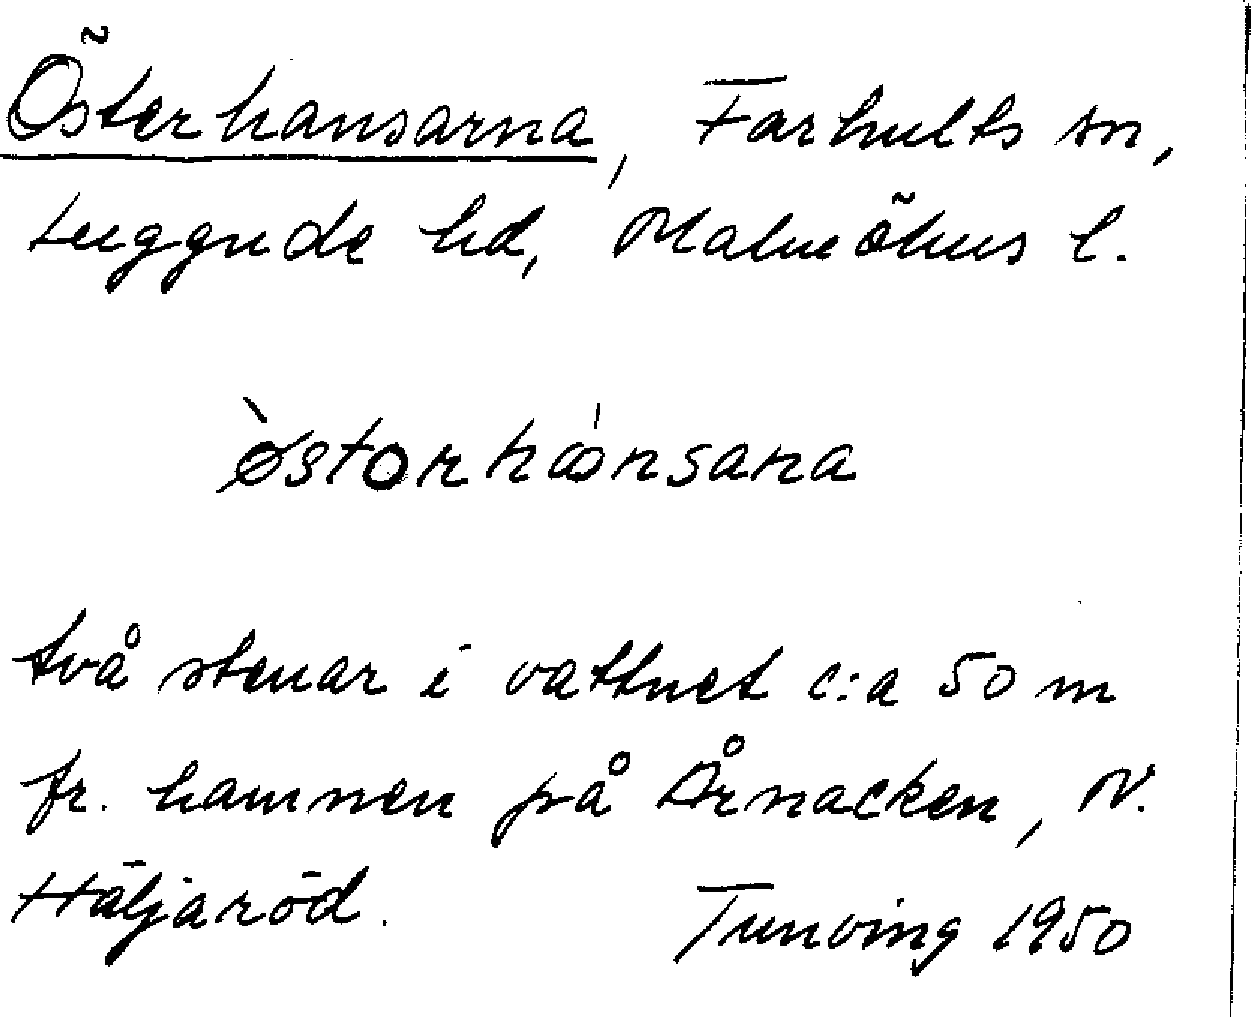 Österhansarna, Farhults sn,
Luggude hd, Malmöhus l.
østorhånsana
två stenar i vattnet c:a 50 m
fr. hamnen på Årnacken, N.
Häljaröd. Tunving 1950